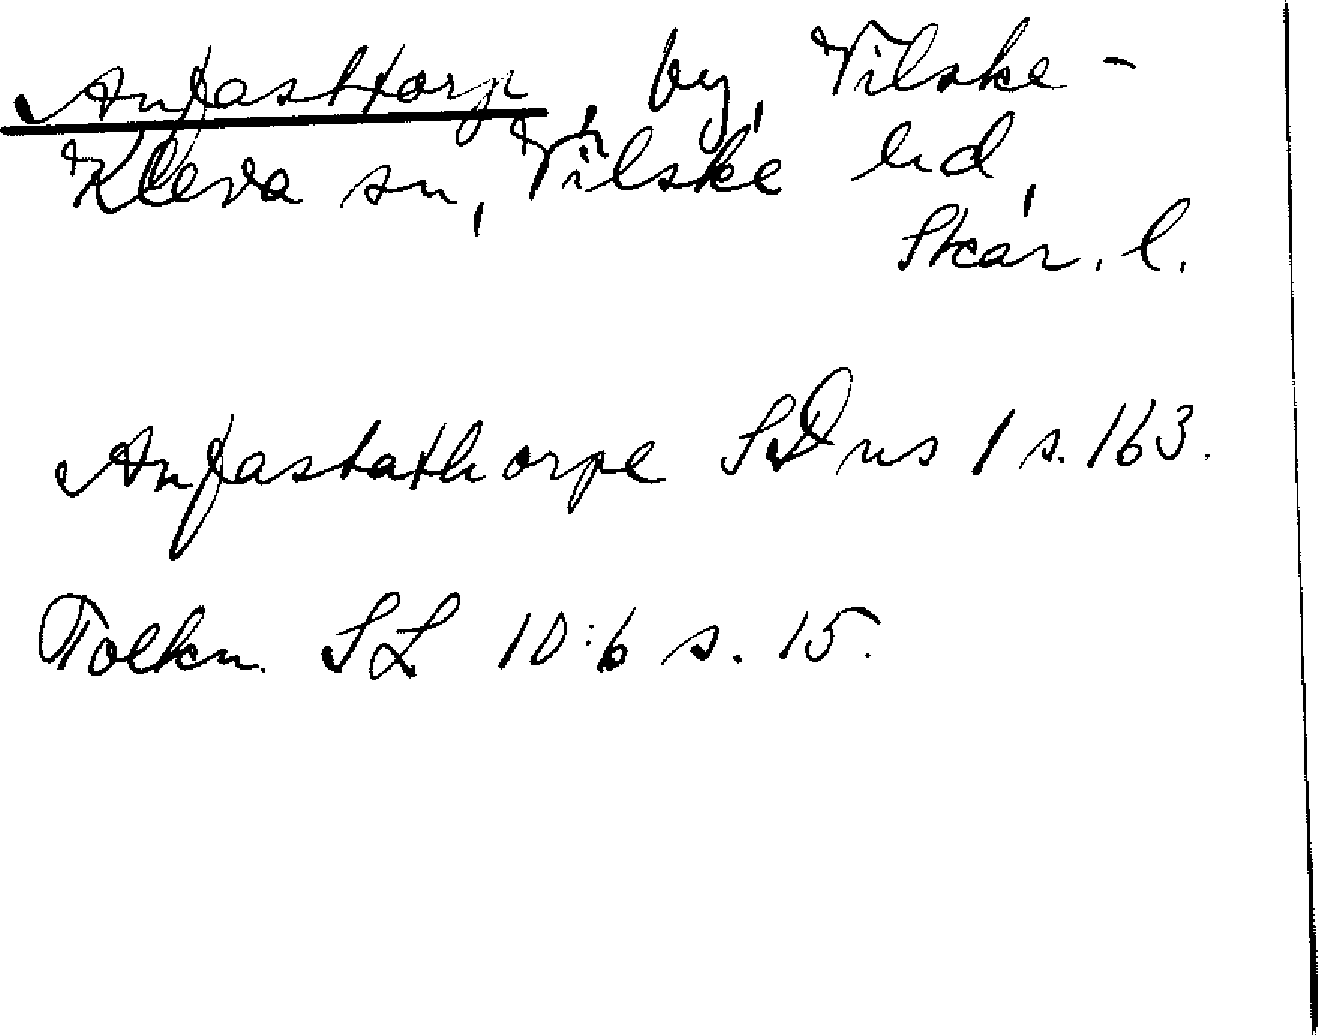 Anfasttorp, by, Vilske-
Kleva sn, Vilske hd,
Skar. l.
Anfastathorpe SDns 1 s. 163.
Tolkn. SL 10:6 s. 15.